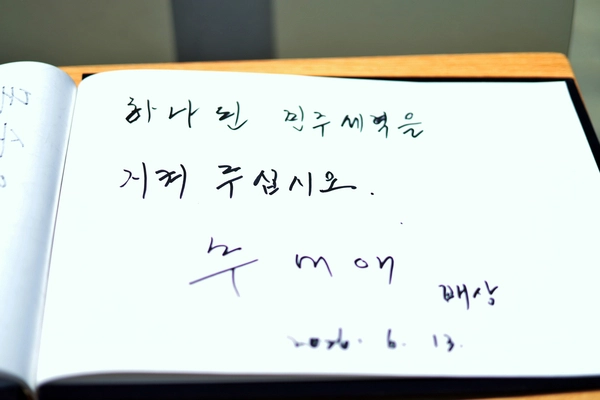 하나된 민주세력을
지켜 주십시오.
추미애
배상
2026. 6. 13.